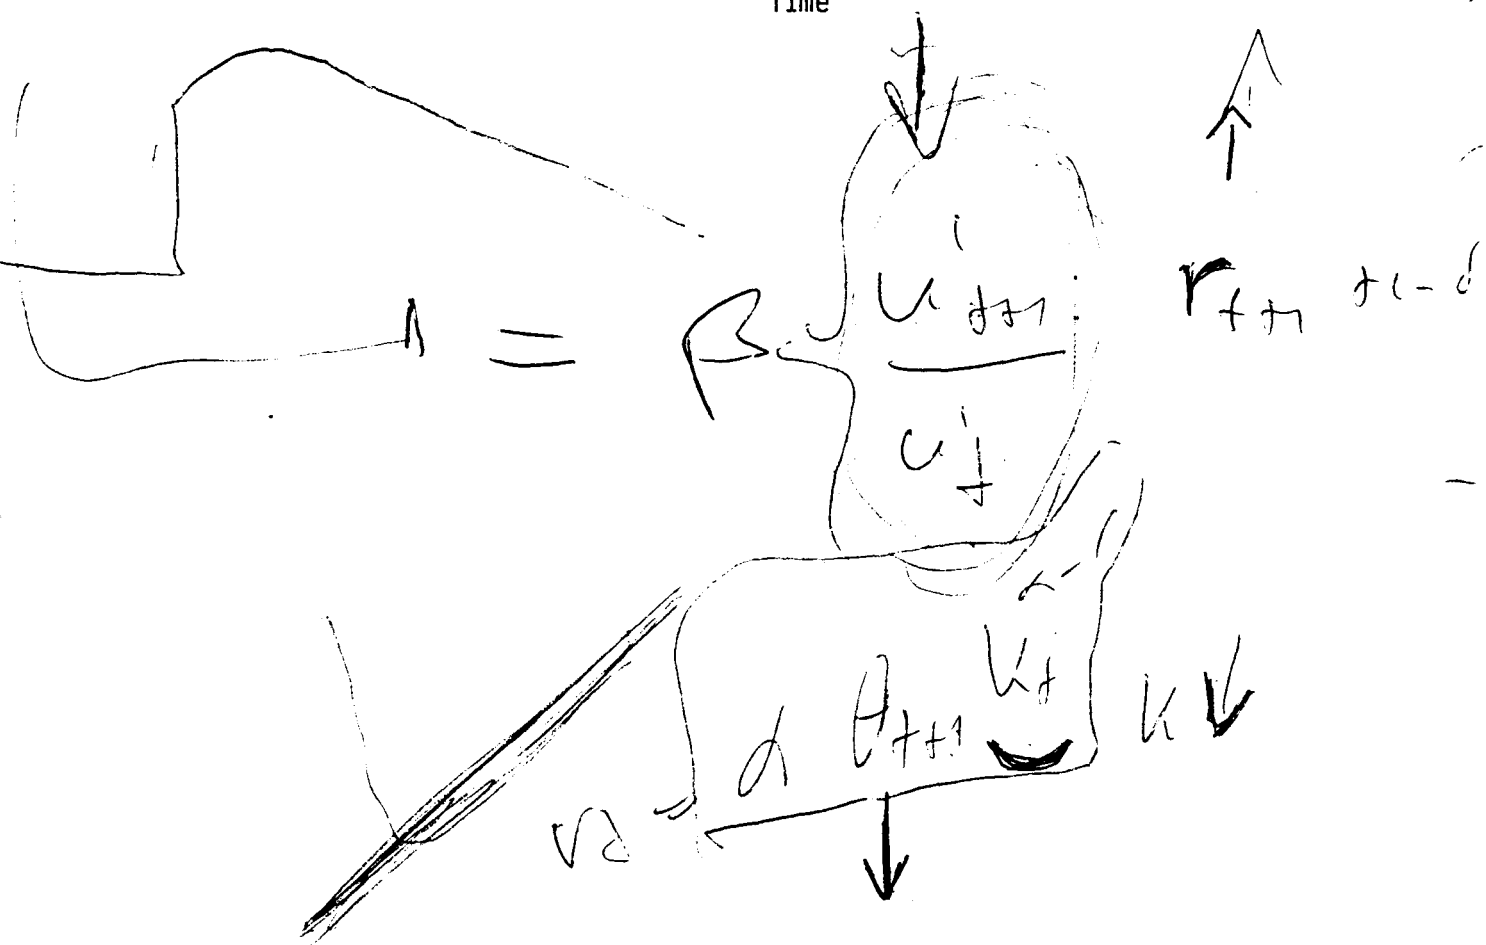 Time
1 = β u'_{t+1} / u'_t r_{t+1} + 1 - δ
α θ_{t+1} k_t^{α-1} k ↓